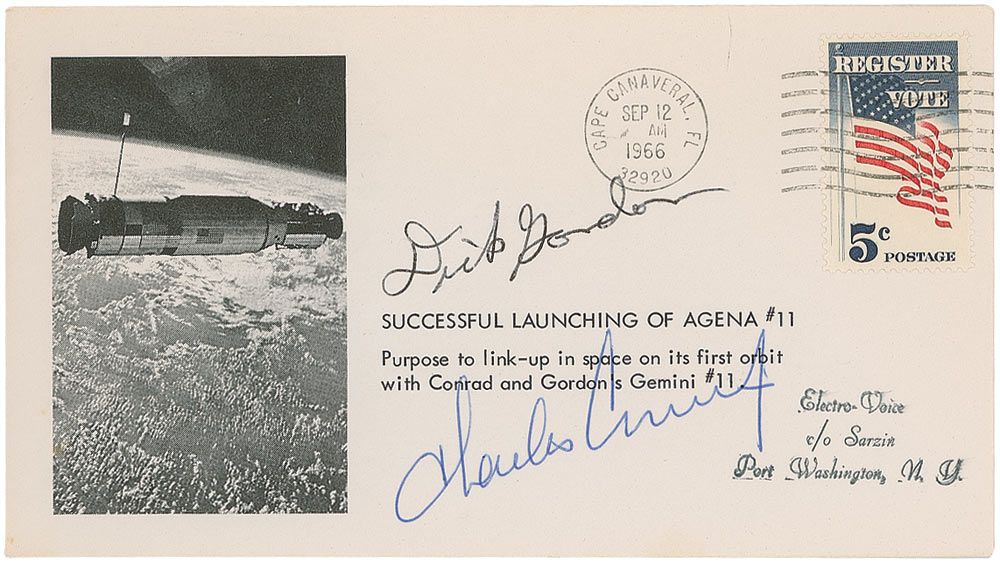 CAPE CANAVERAL, FL
SEP 12
AM
1966
32920
REGISTER
VOTE
5c
POSTAGE
Dick Gordon
SUCCESSFUL LAUNCHING OF AGENA #11
Purpose to link-up in space on its first orbit
with Conrad and Gordon's Gemini #11.
Charles Conrad
Electro-Voice
c/o Sarzin
Port Washington, N. Y.